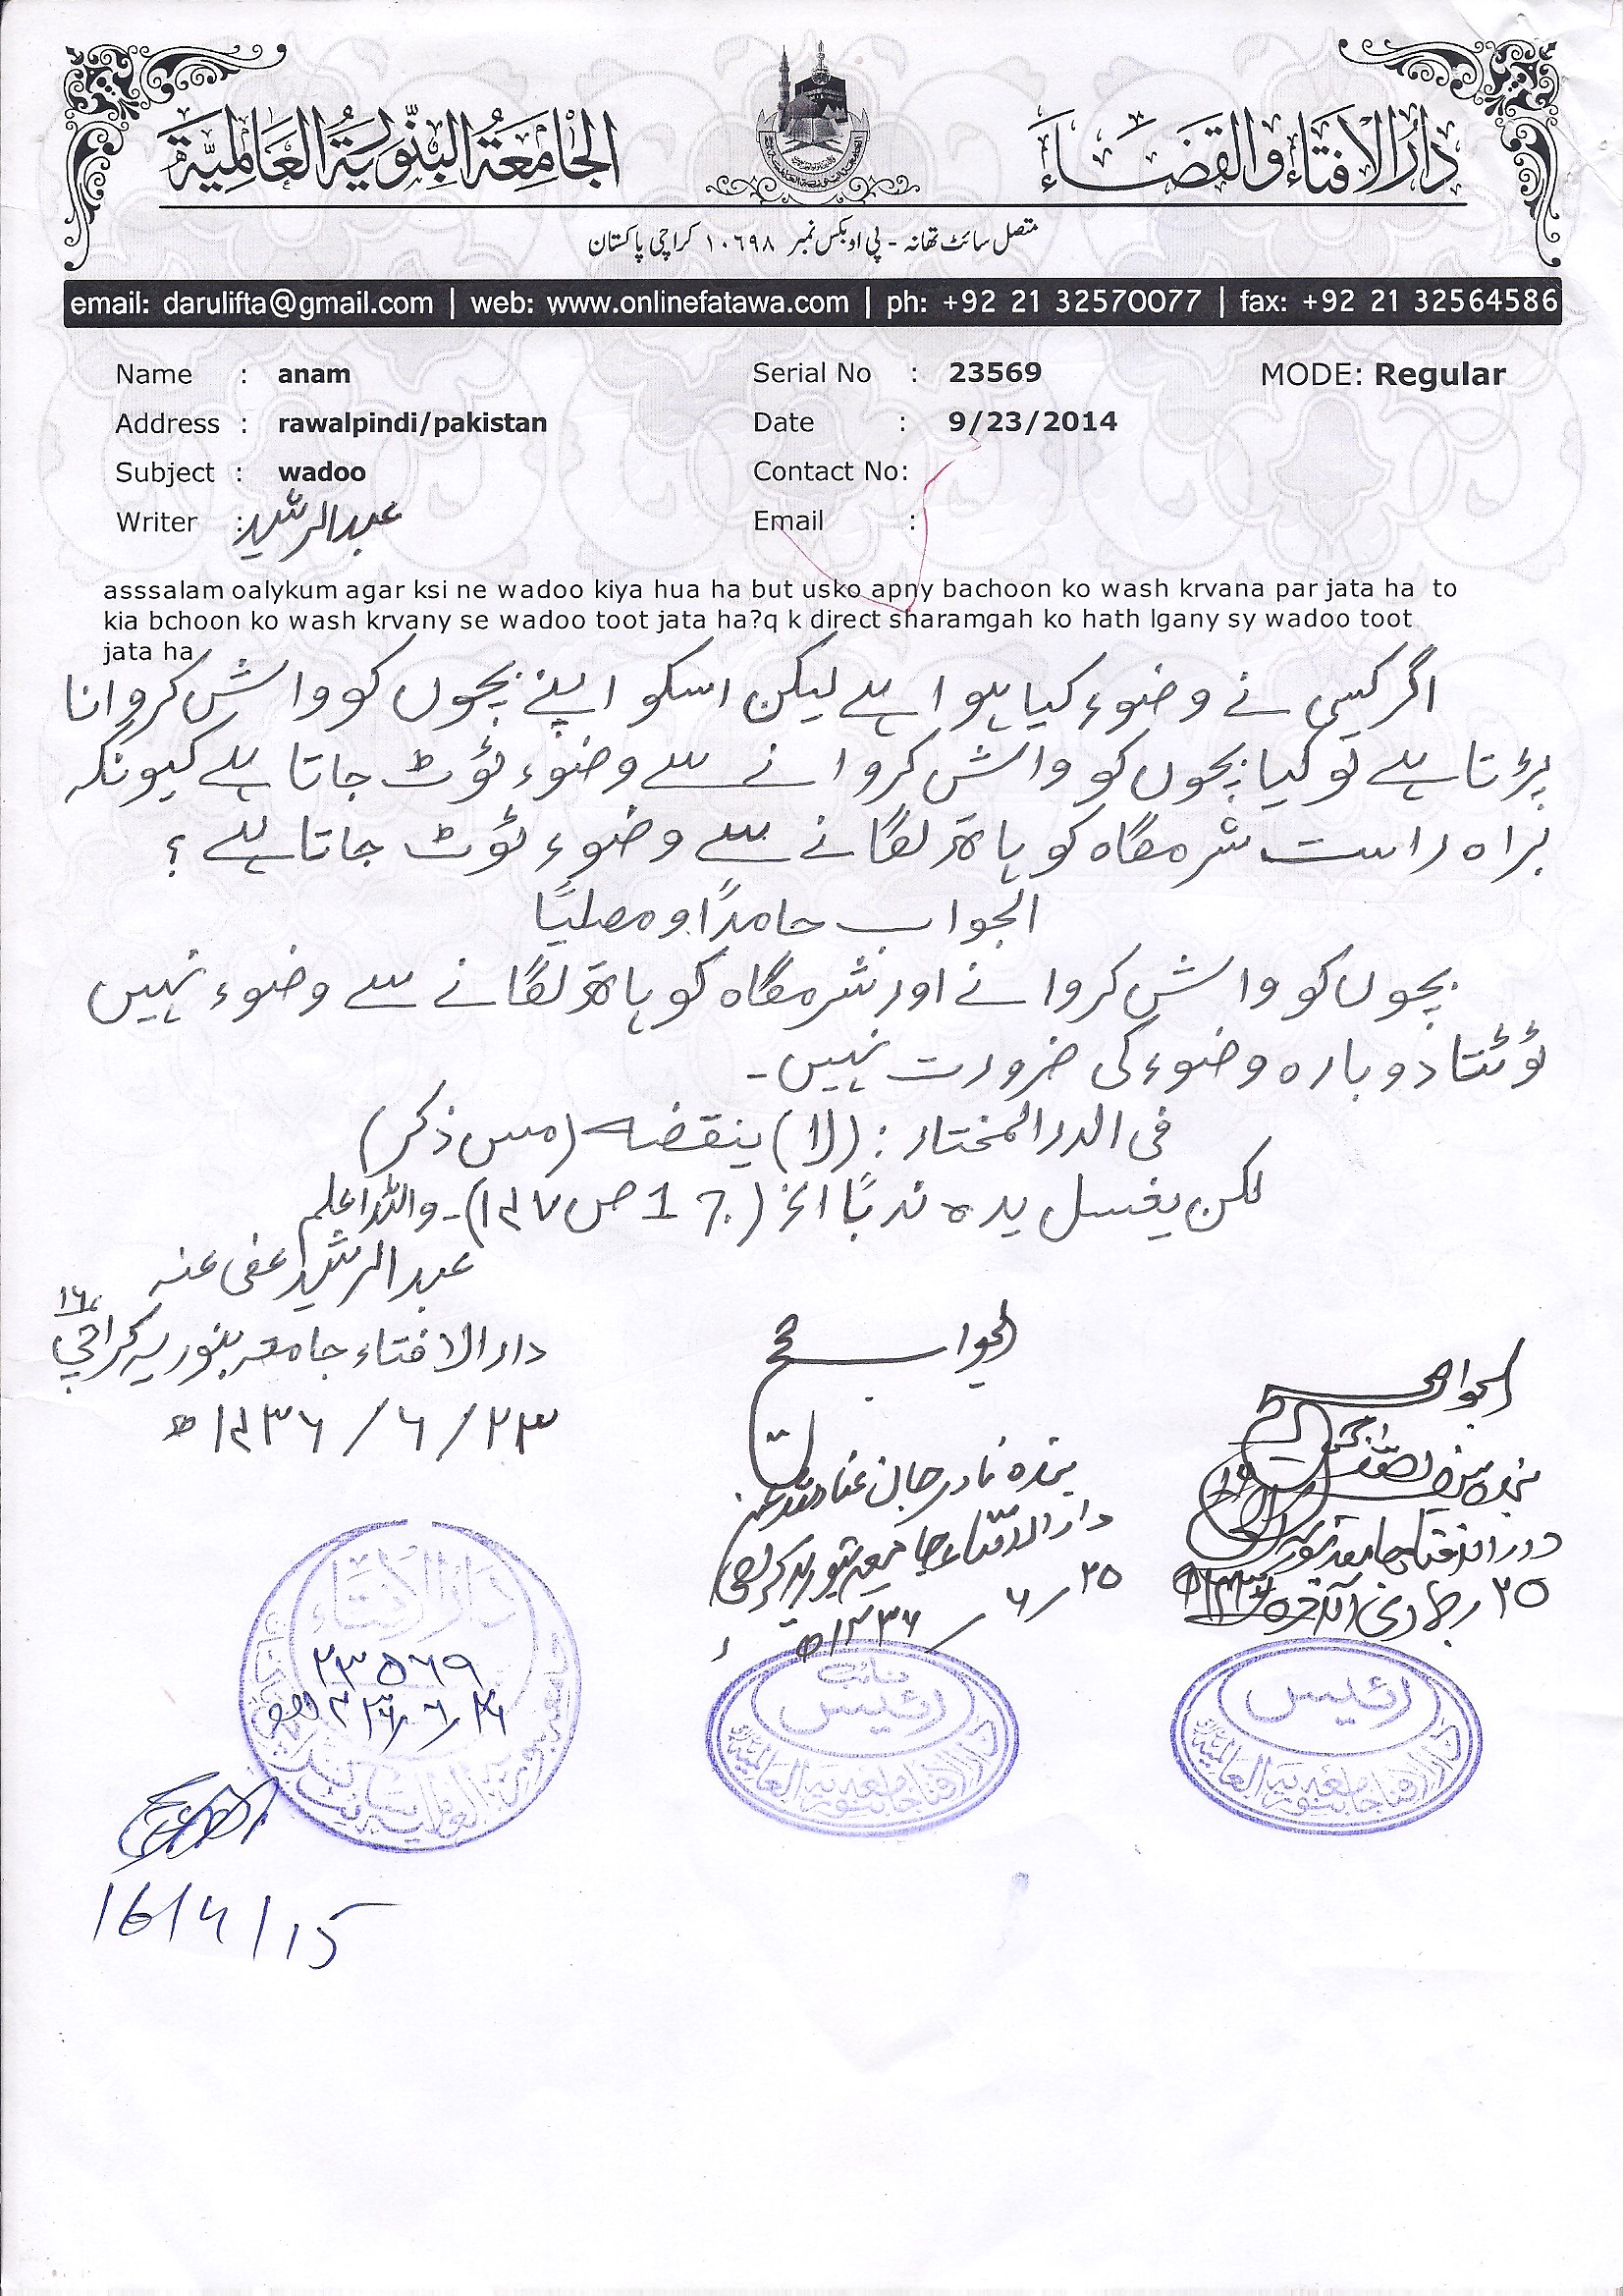 دار الافتاء والقضاء
الجَامِعَةُ البِنّورِيَةُ العَالَمِيَّة
متصل سائٹ تھانہ - پی او بکس نمبر ۱۰۶۹۸ کراچی پاکستان
email: darulifta@gmail.com | web: www.onlinefatawa.com | ph: +92 21 32570077 | fax: +92 21 32564586
Name : anam Serial No : 23569 MODE: Regular
Address : rawalpindi/pakistan Date : 9/23/2014
Subject : wadoo Contact No:
Writer : عبدالرشید Email :
asssalam oalykum agar ksi ne wadoo kiya hua ha but usko apny bachoon ko wash krvana par jata ha to
kia bchoon ko wash krvany se wadoo toot jata ha?q k direct sharamgah ko hath lgany sy wadoo toot
jata ha
اگر کسی نے وضوء کیا ہوا ہے لیکن اسکو اپنے بچوں کو واش کروانا
پڑتا ہے تو کیا بچوں کو واش کروانے سے وضوء ٹوٹ جاتا ہے کیونکہ
براہ راست شرمگاہ کو ہاتھ لگانے سے وضوء ٹوٹ جاتا ہے ؟
الجواب حامدًا ومصلیًا
بچوں کو واش کروانے اور شرمگاہ کو ہاتھ لگانے سے وضوء نہیں
ٹوٹتا دوبارہ وضوء کی ضرورت نہیں۔
فی الدر المختار : (لا) ینقضہ (مس ذکر)
لکن یغسل یدہ ندبًا الخ (ج 1 ص ۱۴۷)۔ واللہ اعلم
عبدالرشید عفی عنہ
دار الافتاء جامعہ بنوریہ کراچی ۱۶
۲۳/۶/۱۴۳۶ھ
الجواب صحیح
بندہ نادر جان عفا اللہ عنہ
دار الافتاء جامعہ بنوریہ کراچی
۲۵/۶/۱۴۳۶ھ
الجواب صحیح
دار الافتاء جامعہ بنوریہ
۲۵ جمادی الآخرہ
دار الافتاء
۲۳۵۶۹
نائب
رئیس
دار الافتاء جامعہ بنوریہ العالمیہ
رئیس
دار الافتاء جامعہ بنوریہ العالمیہ
16/4/15